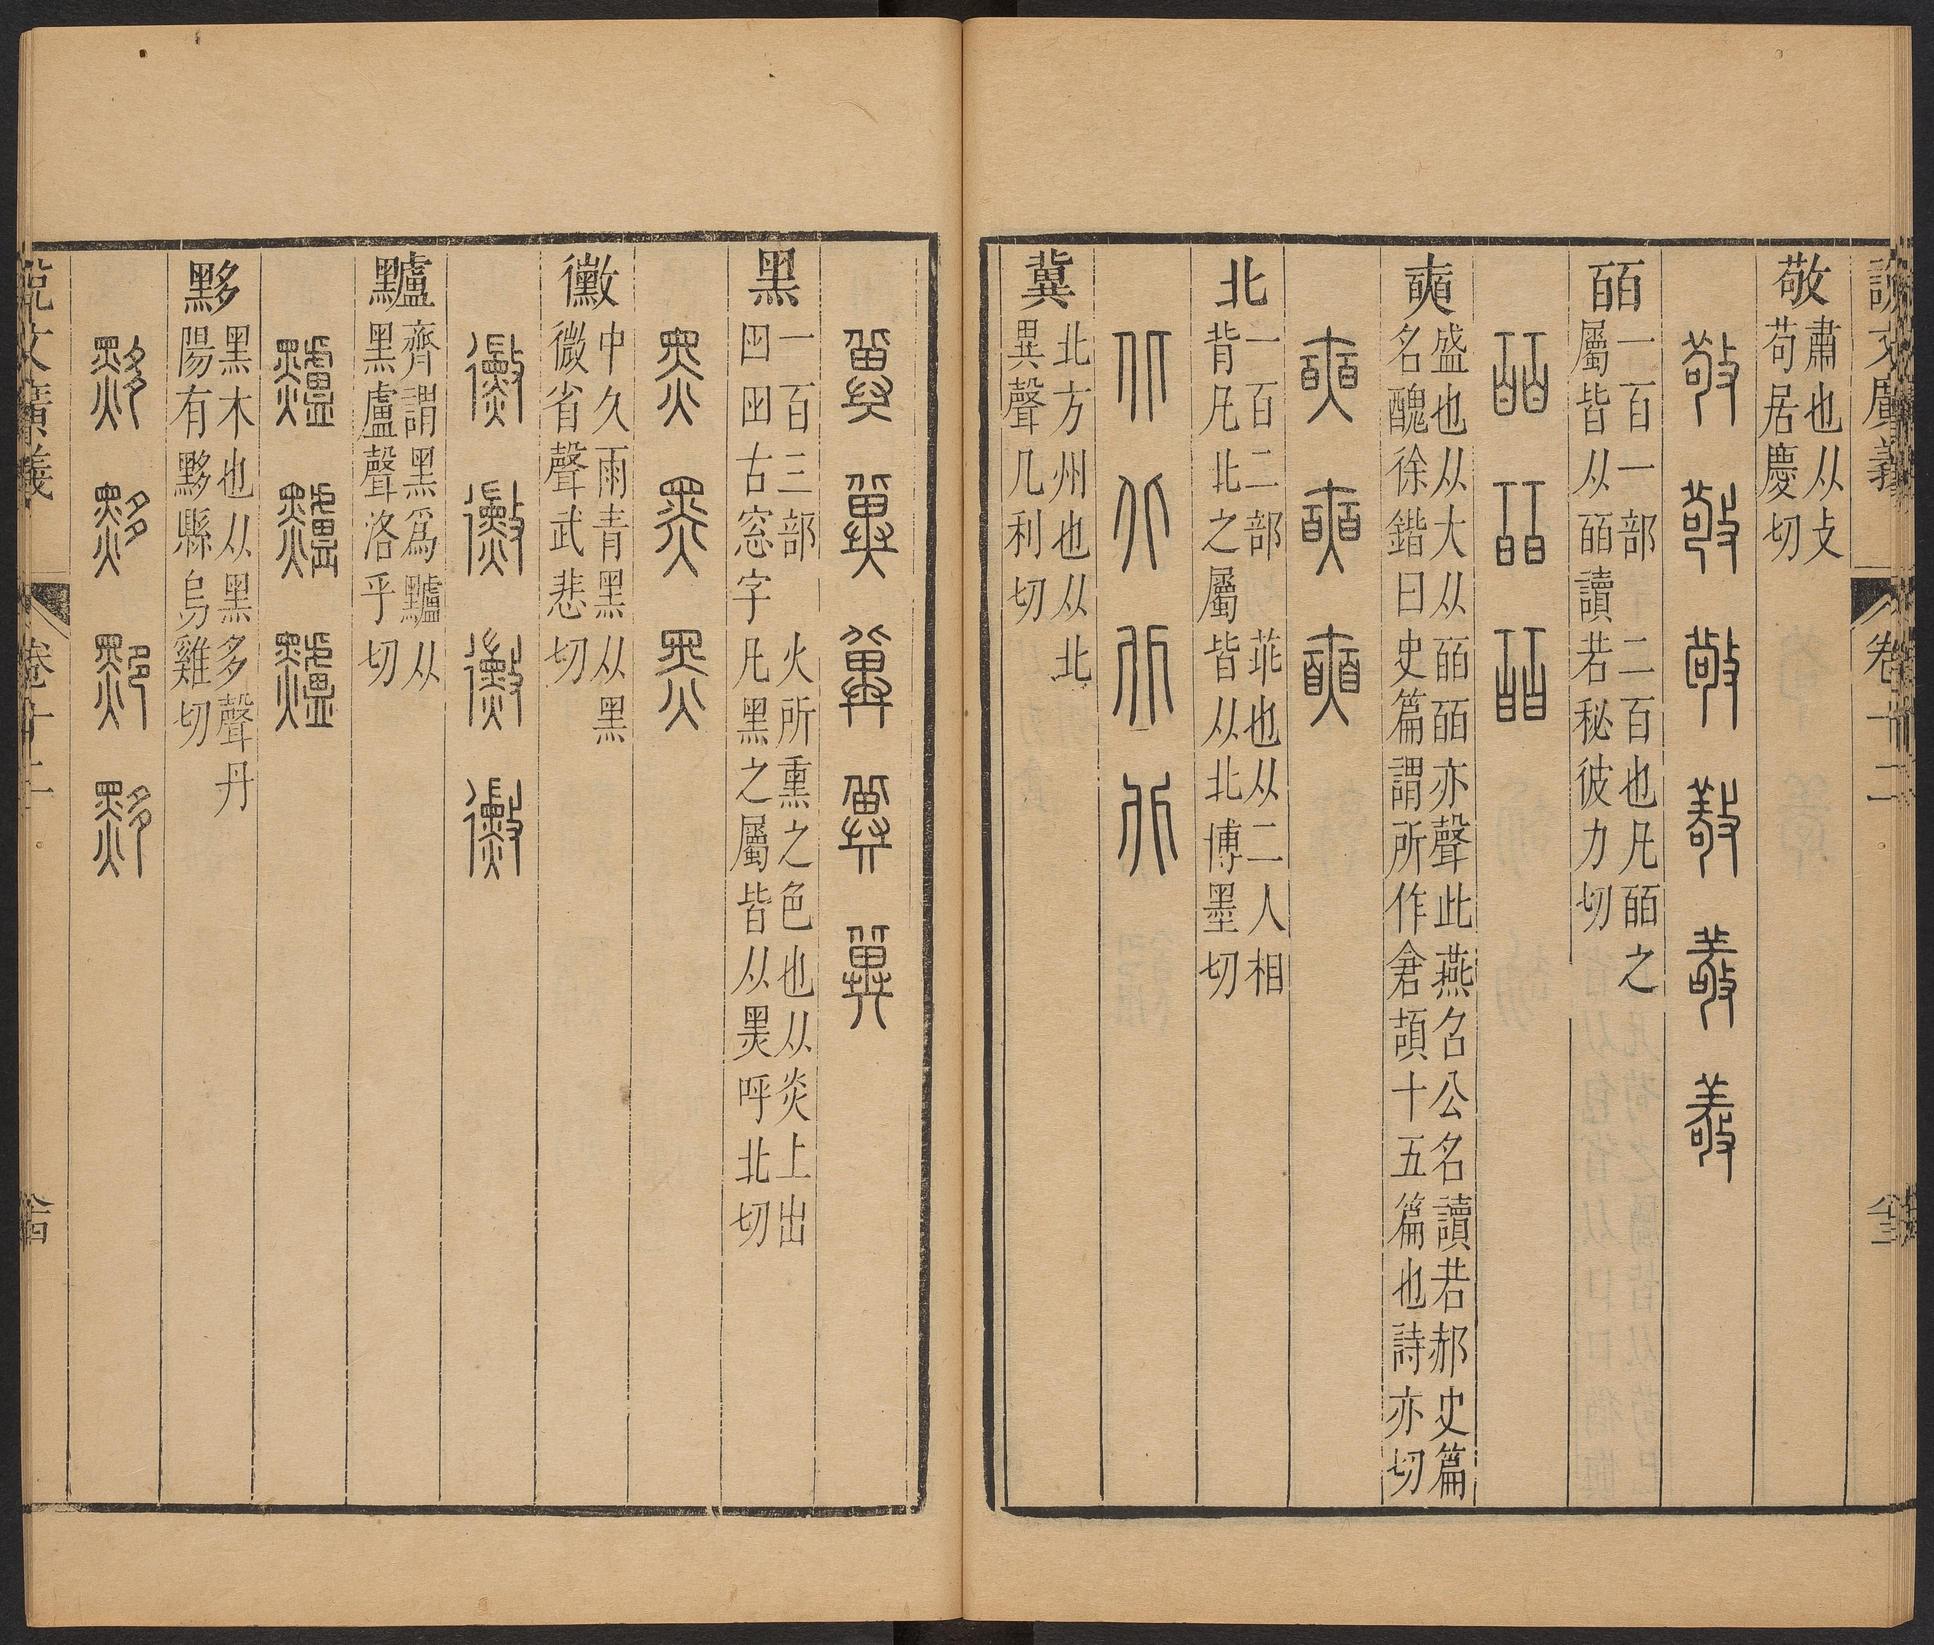 說文廣義
卷十二
敬
肅也从攴
苟居慶切
敬敬敬敬敬敬
皕
一百一部 二百也凡皕之
屬皆从皕讀若秘彼力切
皕皕皕
奭
盛也从大从皕皕亦聲此燕召公名讀若郝史篇
名醜徐鍇曰史篇謂所作倉頡十五篇也詩亦切
奭奭奭
北
一百二部 菲也从二人相
背凡北之屬皆从北博墨切
北北北北
冀
北方州也从北
異聲几利切
冀冀冀冀冀
黑
一百三部 火所熏之色也从炎上出
囧囧古窓字 凡黑之屬皆从黑呼北切
黑黑黑
黴
中久雨青黑从黑
微省聲武悲切
黴黴黴黴
黸
齊謂黑爲黸从
黑盧聲洛乎切
黸黸黸
黟
黑木也从黑多聲丹
陽有黟縣烏雞切
黟黟黟黟
說文廣義
卷十二